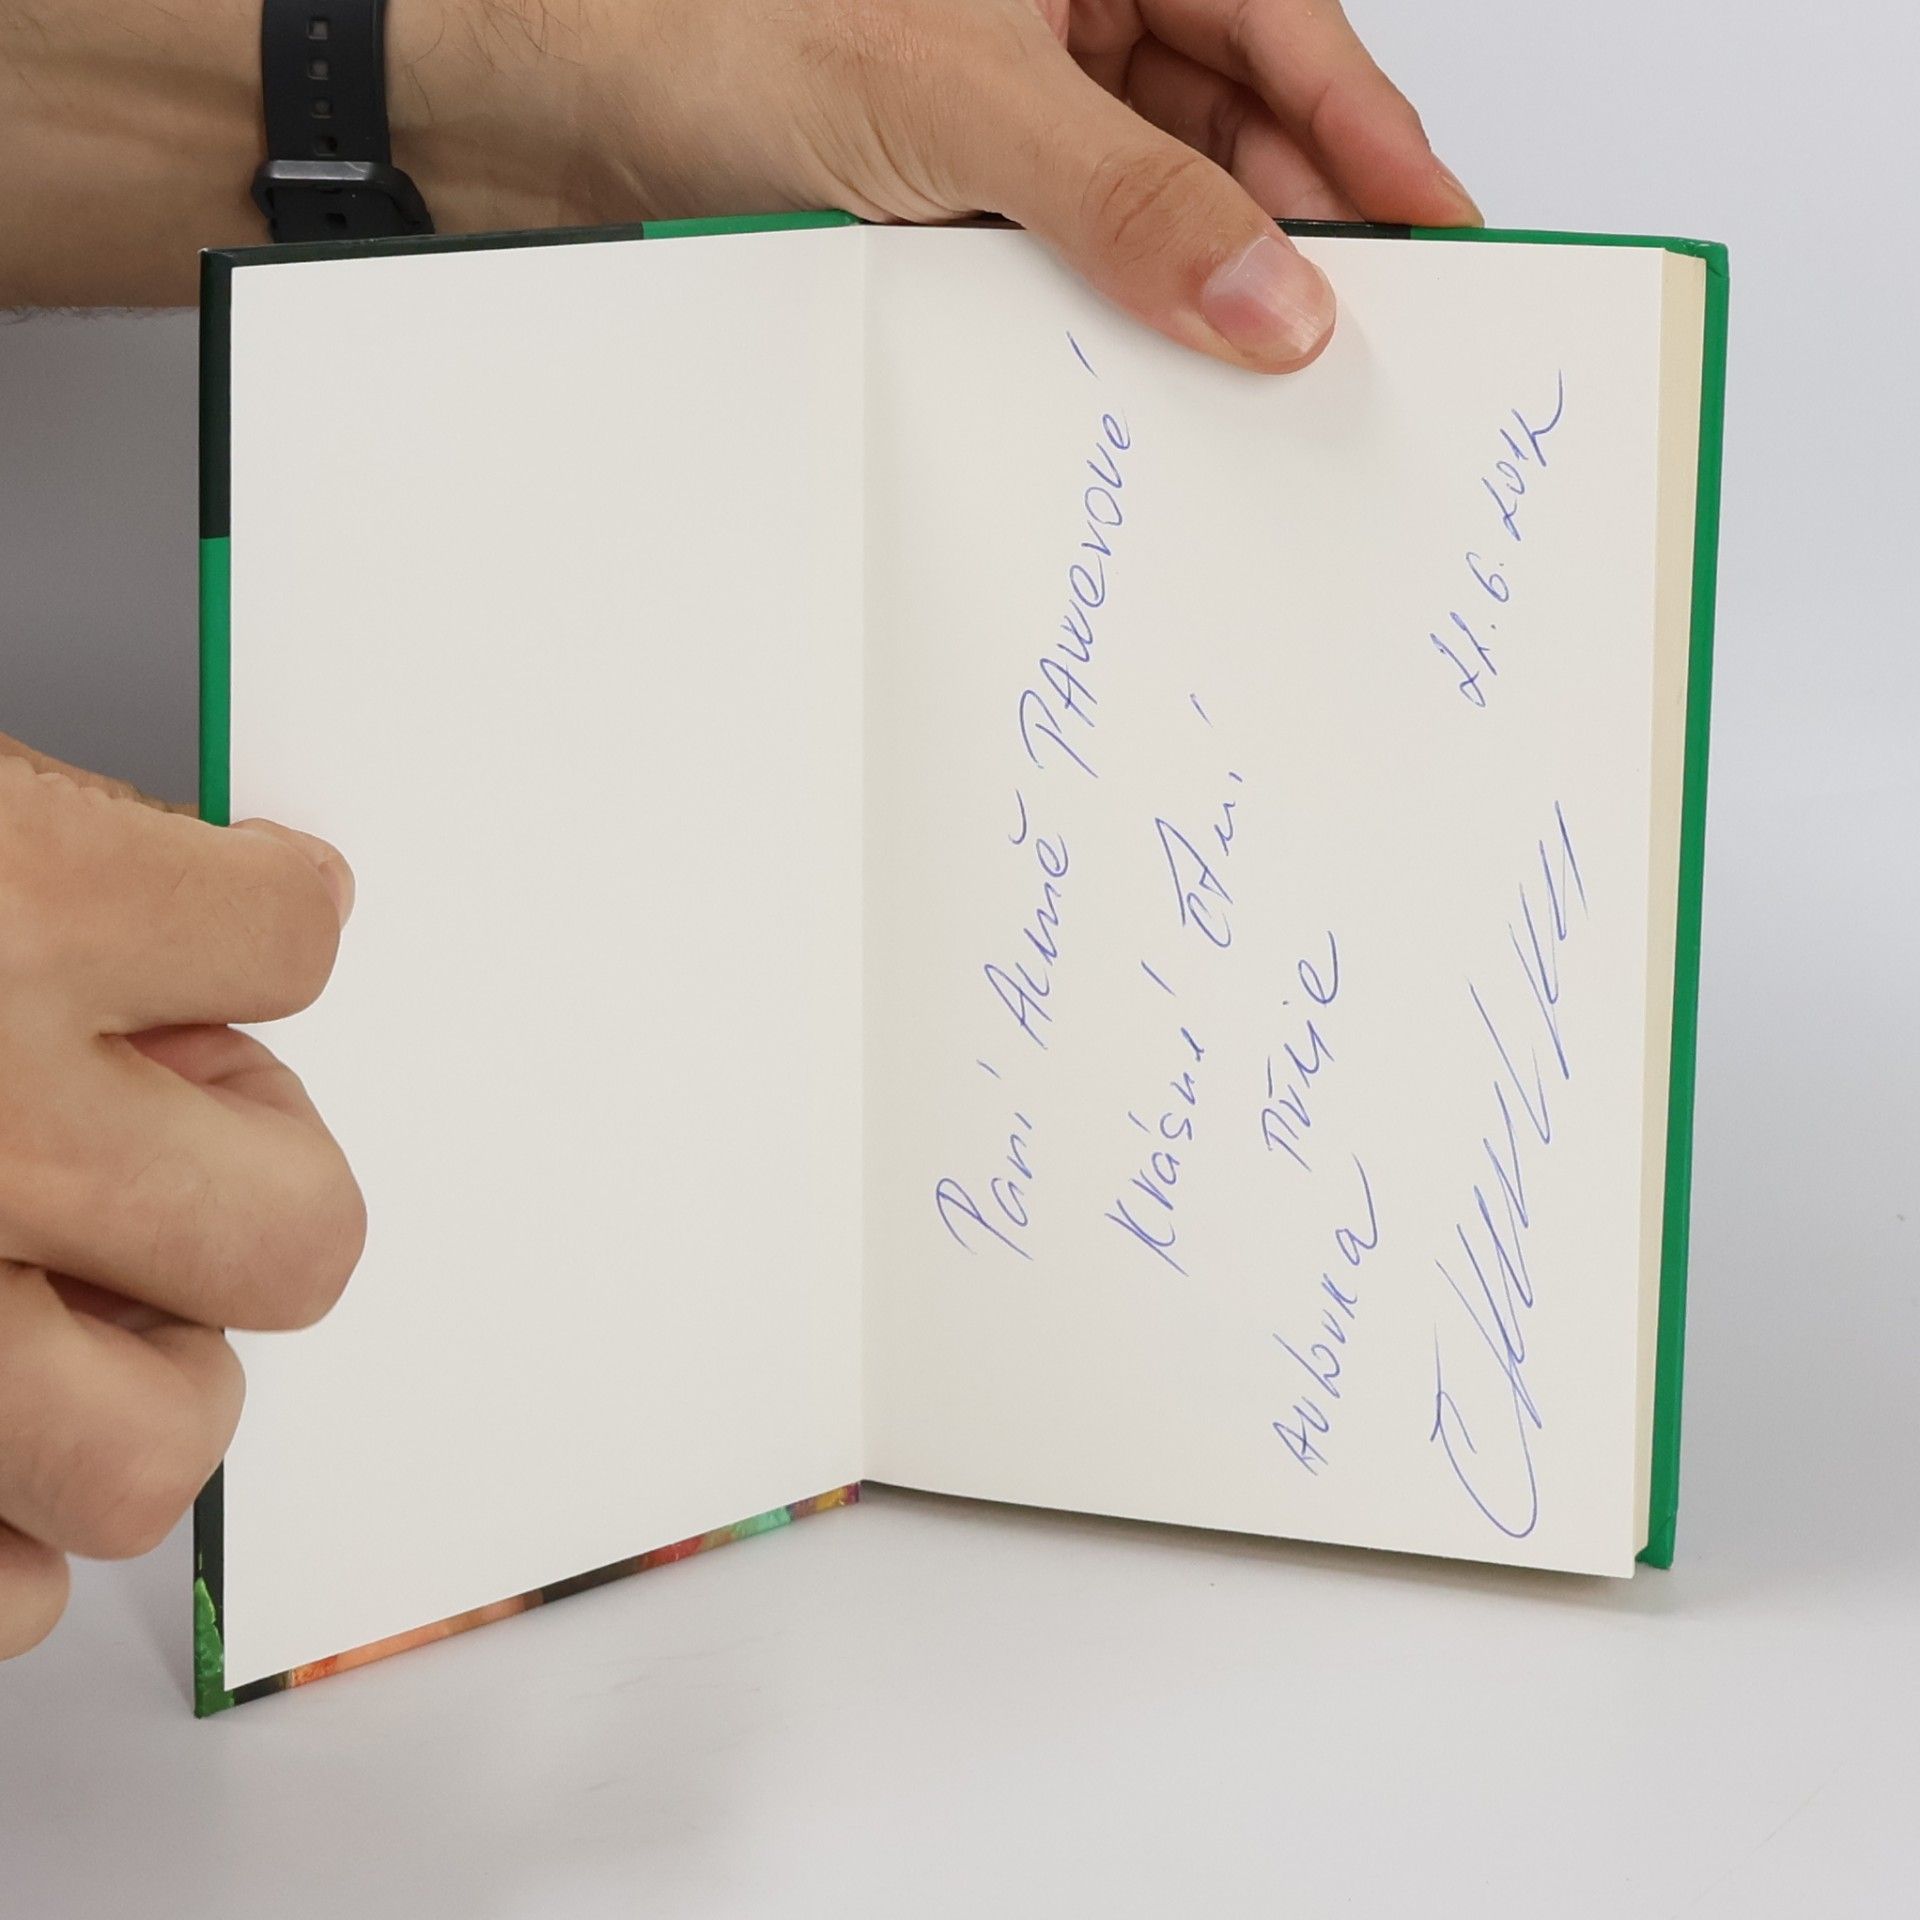 Paní Aleně PAurerové
Krásné čtení
Autorka Přeje
21. 6. 2012